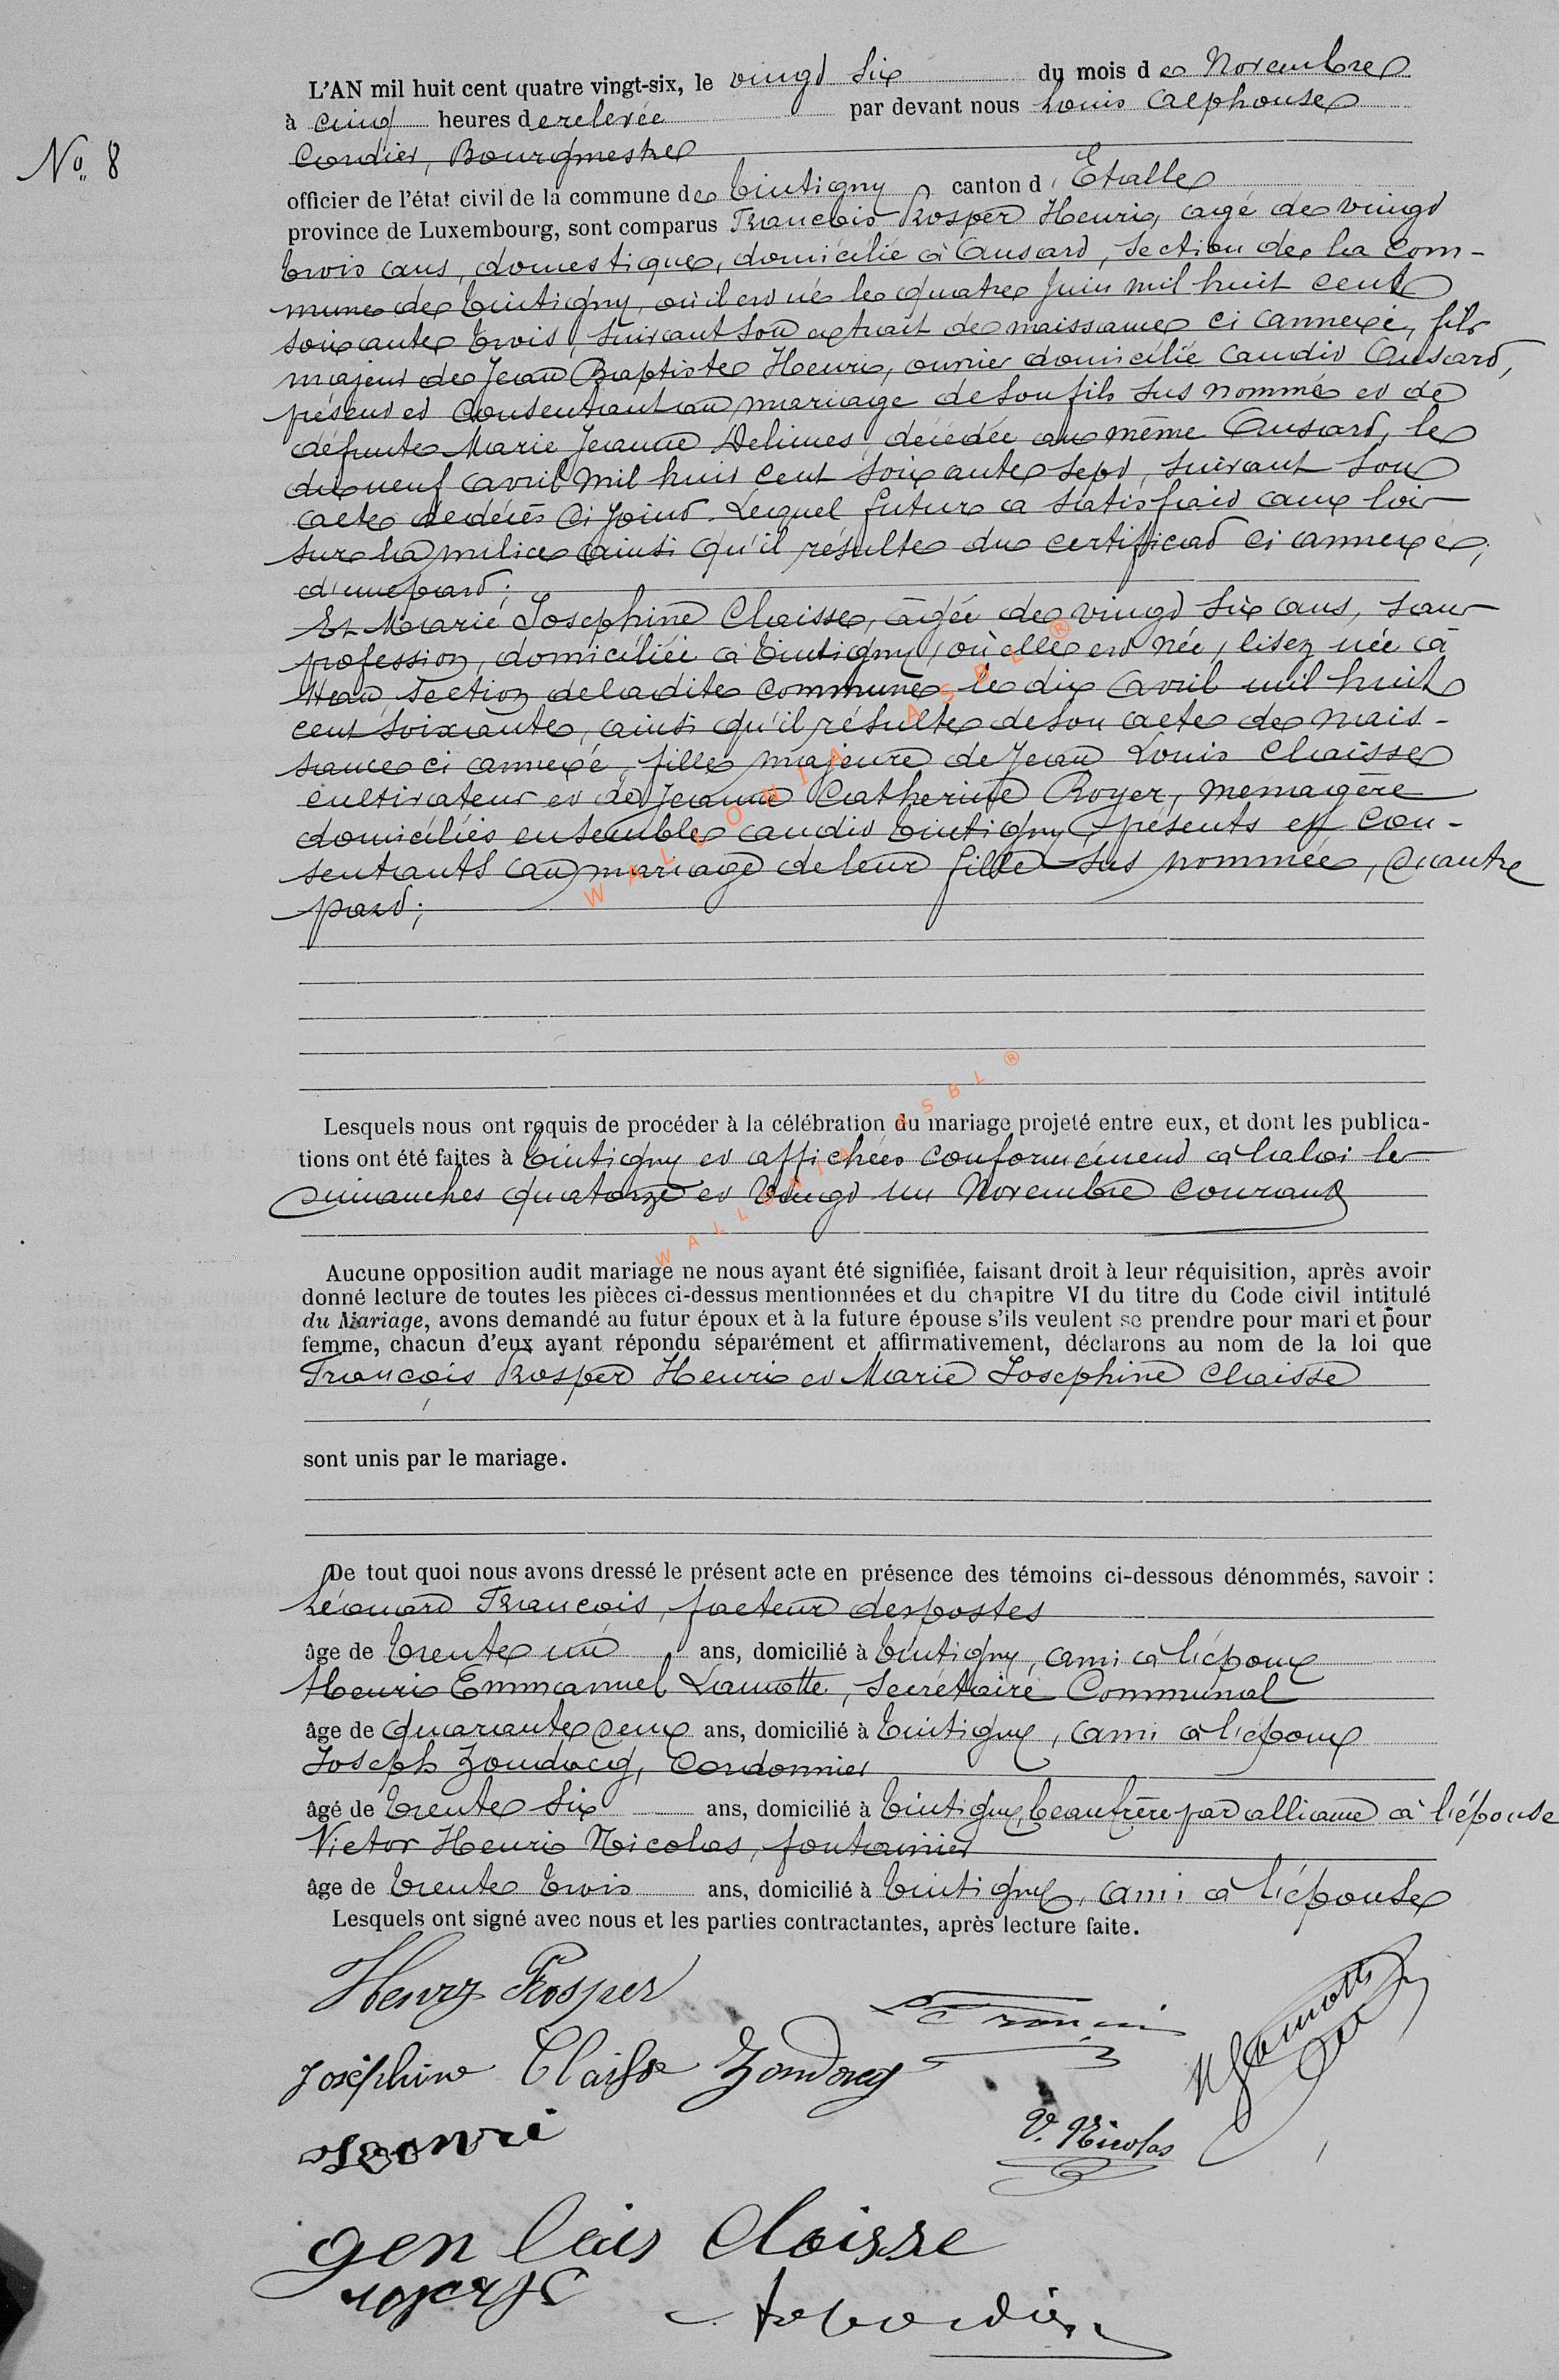 L'AN mil huit cent quatre vingt-six, le vingt six du mois de Novembre
à cinq heures de relevée par devant nous Louis Alphonse
No 8
Cordier, Bourgmestre
officier de l'état civil de la commune de Tintigny canton d'Etalle
province de Luxembourg, sont comparus François Prosper Henri, agé de vingt
trois ans, domestique, domicilié à Ansart, section de la com-
mune de Tintigny, où il est né le quatre Juin mil huit cent
soixante trois, suivant son extrait de naissance ci annexé, fils
majeur de Jean Baptiste Henri, ouvrier domicilié audit Ansart,
présent et consentant au mariage de son fils sus nommé et de
défunte Marie Jeanne Delimes, décédée au même Ansart, le
dix neuf avril mil huit cent soixante sept, suivant son
acte de décès ci joint. Lequel futur a satisfait aux lois
sur la milice ainsi qu'il résulte du certificat ci annexé,
d'une part;
Et Marie Josephine Claisse, âgée de vingt six ans, sans
profession, domiciliée à Tintigny, où elle est née, lisez née à
section de ladite commune le dix avril mil huit
cent soixante, ainsi qu'il résulte de son acte de nais-
sance ci annexé, fille majeure de Jean Louis Claisse
cultivateur et de Jeanne Catherine Royer, ménagère
domiciliés ensemble audit Tintigny, présents et con-
sentants au mariage de leur fille sus nommée, d'autre
part;
Lesquels nous ont requis de procéder à la célébration du mariage projeté entre eux, et dont les publica-
tions ont été faites à Tintigny et affichées conformément à la loi les
Dimanches quatorze et vingt un Novembre courant
Aucune opposition audit mariage ne nous ayant été signifiée, faisant droit à leur réquisition, après avoir
donné lecture de toutes les pièces ci-dessus mentionnées et du chapitre VI du titre du Code civil intitulé
du Mariage, avons demandé au futur époux et à la future épouse s'ils veulent se prendre pour mari et pour
femme, chacun d'eux ayant répondu séparément et affirmativement, déclarons au nom de la loi que
François Prosper Henri et Marie Josephine Claisse
sont unis par le mariage.
De tout quoi nous avons dressé le présent acte en présence des témoins ci-dessous dénommés, savoir :
Léonard François, facteur des postes
âge de trente un ans, domicilié à Tintigny, ami à l'époux
Henri Emmanuel Lamotte, secrétaire Communal
âge de quarante deux ans, domicilié à Tintigny, ami à l'époux
Joseph Zoudocq, Cordonnier
âgé de trente six ans, domicilié à Tintigny, beaufrère par alliance à l'épouse
Victor Henri Nicolas, fontainier
âge de trente trois ans, domicilié à Tintigny, ami à l'épouse
Lesquels ont signé avec nous et les parties contractantes, après lecture faite.
Henry Prosper
Joséphine Claisse Zondocq
V. Nicolas
gen lais Claisse
WALLONIA ASBL ®
WALLONIA ASBL ®